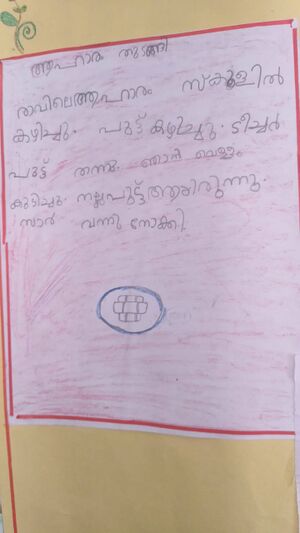 ആഹാരം തുടങ്ങി
രാവിലെത്തആഹാരം സ്കൂളിൽ
കഴിച്ചു. പുട്ട് കഴിച്ചു. ടീച്ചർ
പുട്ട് തന്നു. ഞാൻ വെള്ളം
കുടിച്ചു. നല്ലപുട്ട് ആയിരുന്നു.
സാർ വന്നു നോക്കി.